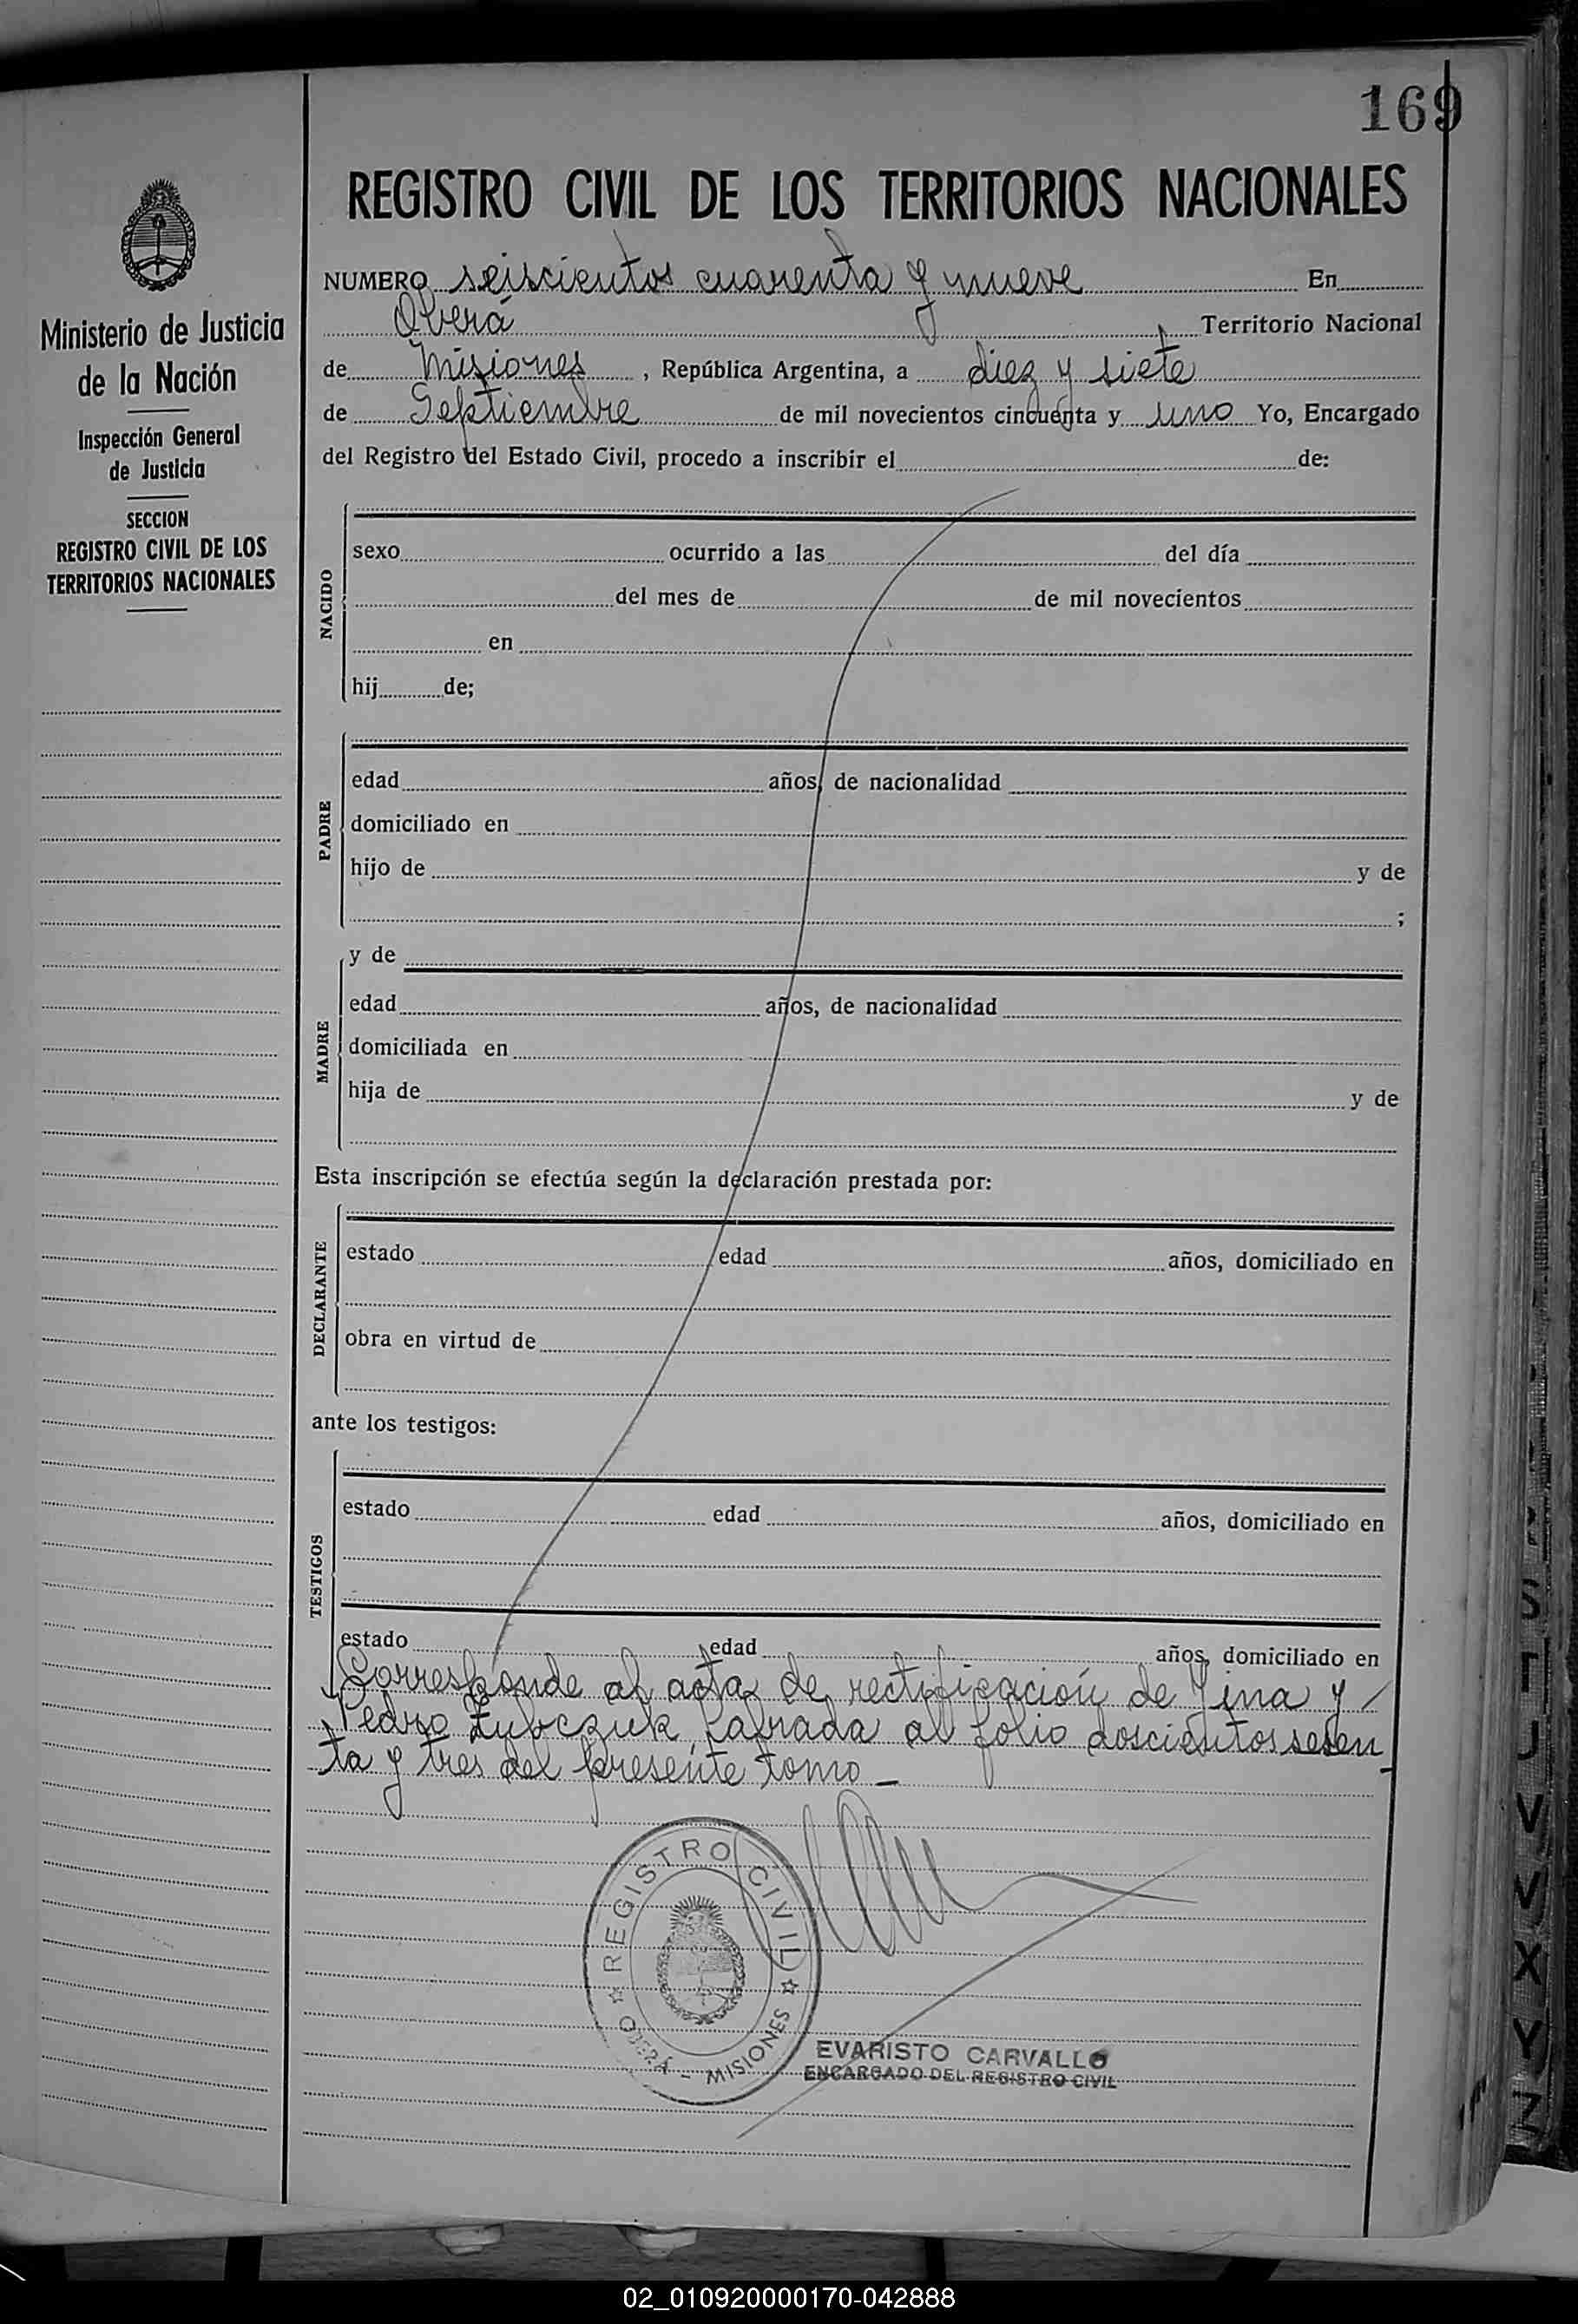 169
REGISTRO CIVIL DE LOS TERRITORIOS NACIONALES
Ministerio de Justicia
de la Nación
Inspección General
de Justicia
SECCION
REGISTRO CIVIL DE LOS
TERRITORIOS NACIONALES
NUMERO seiscientos cuarenta y nueve En
Oberá Territorio Nacional
de Misiones, República Argentina, a diez y siete
de Septiembre de mil novecientos cincuenta y uno Yo, Encargado
del Registro del Estado Civil, procedo a inscribir el de:
NACIDO
sexo ocurrido a las del día
del mes de de mil novecientos
en
hij de;
PADRE
edad años, de nacionalidad
domiciliado en
hijo de y de
;
MADRE
y de
edad años, de nacionalidad
domiciliada en
hija de y de
Esta inscripción se efectúa según la declaración prestada por:
DECLARANTE
estado edad años, domiciliado en
obra en virtud de
ante los testigos:
TESTIGOS
estado edad años, domiciliado en
estado edad años, domiciliado en
Corresponde al acta de rectificación de y
Pedro Zubczuk, labrada al folio doscientos sesen
ta y tres del presente tomo
REGISTRO CIVIL
OBERA - MISIONES
EVARISTO CARVALLO
ENCARGADO DEL REGISTRO CIVIL
S
T
U
V
V
X
Y
Z
02_010920000170-042888